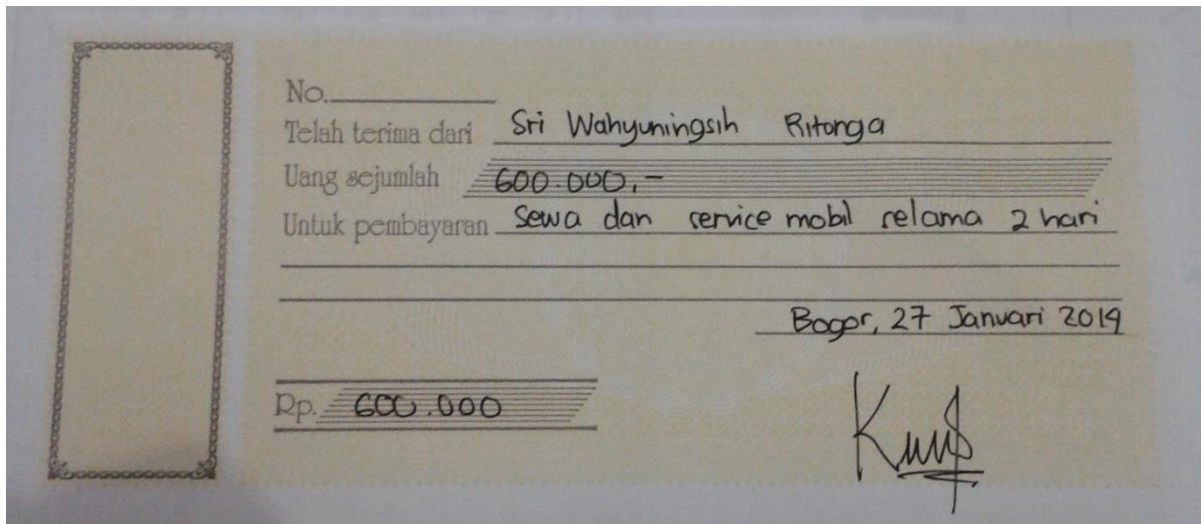 No.
Telah terima dari Sri Wahyuningsih Ritonga
Uang sejumlah 600.000,-
Untuk pembayaran Sewa dan service mobil selama 2 hari
Bogor, 27 Januari 2019
Rp. 600.000